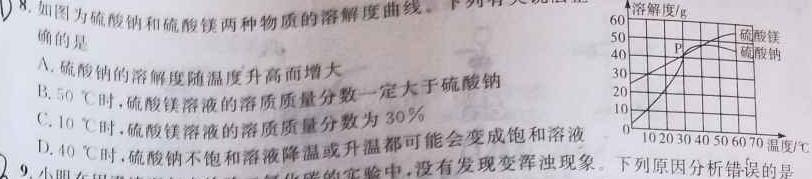 8. 如图为硫酸钠和硫酸镁两种物质的溶解度曲线。下列有关说法正
确的是
A. 硫酸钠的溶解度随温度升高而增大
B. 50 ℃时,硫酸镁溶液的溶质质量分数一定大于硫酸钠
C. 10 ℃时,硫酸镁溶液的溶质质量分数为 30%
D. 40 ℃时,硫酸钠不饱和溶液降温或升温都可能会变成饱和溶液
溶解度/g
60
50
40
30
20
10
0
P
硫酸镁
硫酸钠
10 20 30 40 50 60 70 温度/℃
9. 小明在用
的实验中,没有发现变浑浊现象。下列原因分析错误的是